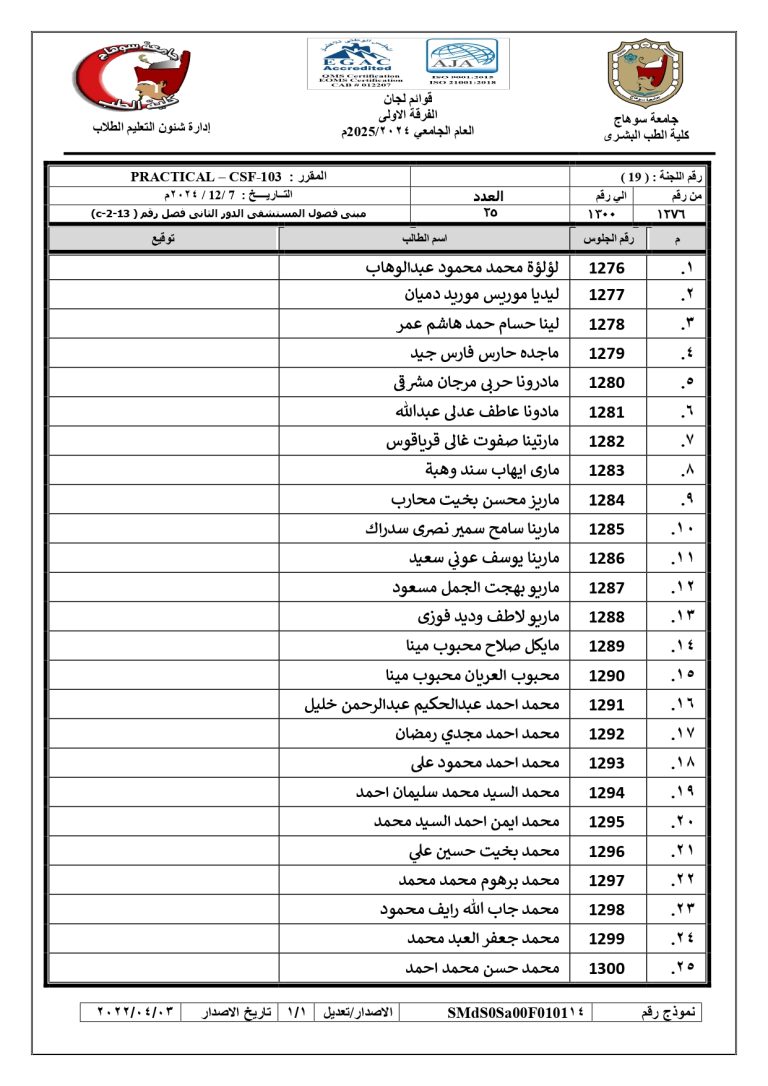 جامعة سوهاج
كلية الطب
إدارة شئون التعليم الطلاب
EGAC
Accredited
QMS Certification
EOMS Certification
CAB # 012207
AJA
ISO 9001:2015
ISO 21001:2018
قوائم لجان
الفرقة الاولى
العام الجامعي ٢٠٢٤/2025م
جامعة سوهاج
كلية الطب البشرى
رقم اللجنة : ( 19 ) المقرر : PRACTICAL – CSF-103
من رقم الي رقم العدد التـاريـــخ : 7 /12 /٢٠٢٤م
١٢٧٦ ١٣٠٠ ٢٥ مبنى فصول المستشفى الدور الثانى فصل رقم ( c-2-13)
م رقم الجلوس اسم الطالب توقيع
١. 1276 لؤلؤة محمد محمود عبدالوهاب
٢. 1277 ليديا موريس موريد دميان
٣. 1278 لينا حسام حمد هاشم عمر
٤. 1279 ماجده حارس فارس جيد
٥. 1280 مادرونا حربى مرجان مشرقى
٦. 1281 مادونا عاطف عدلى عبدالله
٧. 1282 مارتينا صفوت غالى قرياقوس
٨. 1283 مارى ايهاب سند وهبة
٩. 1284 ماريز محسن بخيت محارب
١٠. 1285 مارينا سامح سمير نصرى سدراك
١١. 1286 مارينا يوسف عوني سعيد
١٢. 1287 ماريو بهجت الجمل مسعود
١٣. 1288 ماريو لاطف وديد فوزى
١٤. 1289 مايكل صلاح محبوب مينا
١٥. 1290 محبوب العريان محبوب مينا
١٦. 1291 محمد احمد عبدالحكيم عبدالرحمن خليل
١٧. 1292 محمد احمد مجدي رمضان
١٨. 1293 محمد احمد محمود على
١٩. 1294 محمد السيد محمد سليمان احمد
٢٠. 1295 محمد ايمن احمد السيد محمد
٢١. 1296 محمد بخيت حسين علي
٢٢. 1297 محمد برهوم محمد محمد
٢٣. 1298 محمد جاب الله رايف محمود
٢٤. 1299 محمد جعفر العبد محمد
٢٥. 1300 محمد حسن محمد احمد
نموذج رقم SMdS0Sa00F0101١٤ الاصدار/تعديل ١/١ تاريخ الاصدار ٢٠٢٢/٠٤/٠٣